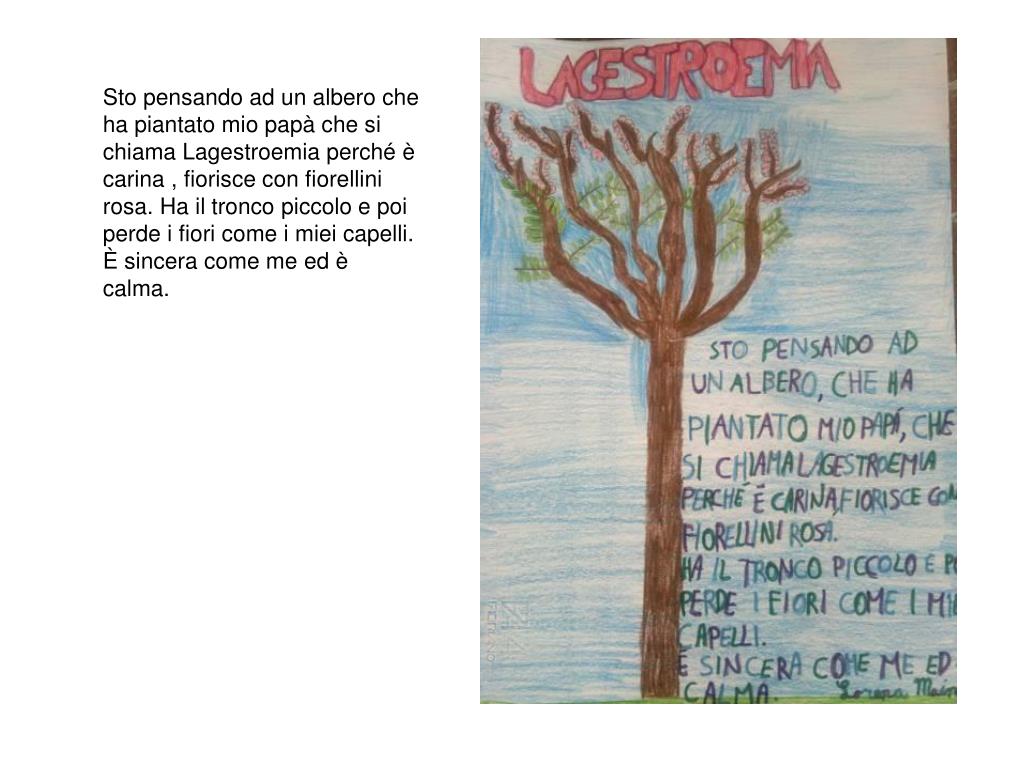 Sto pensando ad un albero che
ha piantato mio papà che si
chiama Lagestroemia perché è
carina , fiorisce con fiorellini
rosa. Ha il tronco piccolo e poi
perde i fiori come i miei capelli.
È sincera come me ed è
calma.
LAGESTROEMIA
STO PENSANDO AD
UN ALBERO, CHE HA
PIANTATO MIO PAPÁ, CHE
SI CHIAMA LAGESTROEMIA
PERCHÉ É CARINA, FIORISCE CON
FIORELLINI ROSA.
HA IL TRONCO PICCOLO E
PERDE I FIORI COME I
CAPELLI.
É SINCERA COME ME ED
CALMA. Lorena